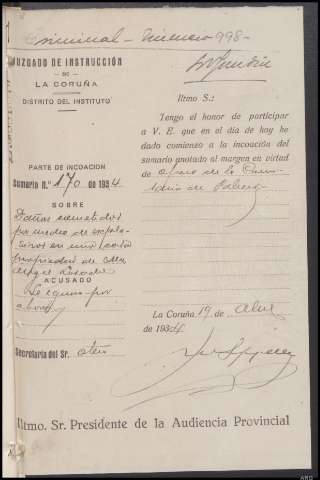 Criminal - Numero 998-
JUZGADO DE INSTRUCCIÓN
DE
LA CORUÑA
DISTRITO DEL INSTITUTO
PARTE DE INCOACIÓN
Sumario N.º 170 de 1934
SOBRE
Daños cometidos
por medio de explo-
sivos en una caseta
propiedad de
ACUSADO
Se ignora por
ahora
Secretaría del Sr. Otero
Iltmo S.:
Tengo el honor de participar
a V. E. que en el día de hoy he
dado comienzo a la incoación del
sumario anotado al margen en virtud
de oficio de la Comi-
saría de
La Coruña 19 de Abril
de 1934
Iltmo. Sr. Presidente de la Audiencia Provincial